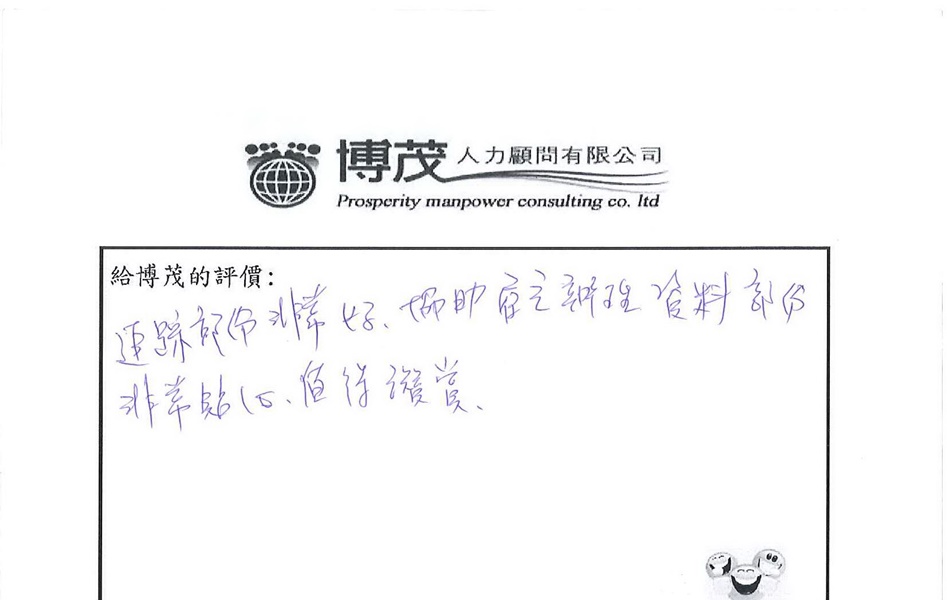 博茂人力顧問有限公司
Prosperity manpower consulting co. ltd
給博茂的評價:
追蹤部份非常好、協助雇主辦理資料部份
非常貼心、值得讚賞、